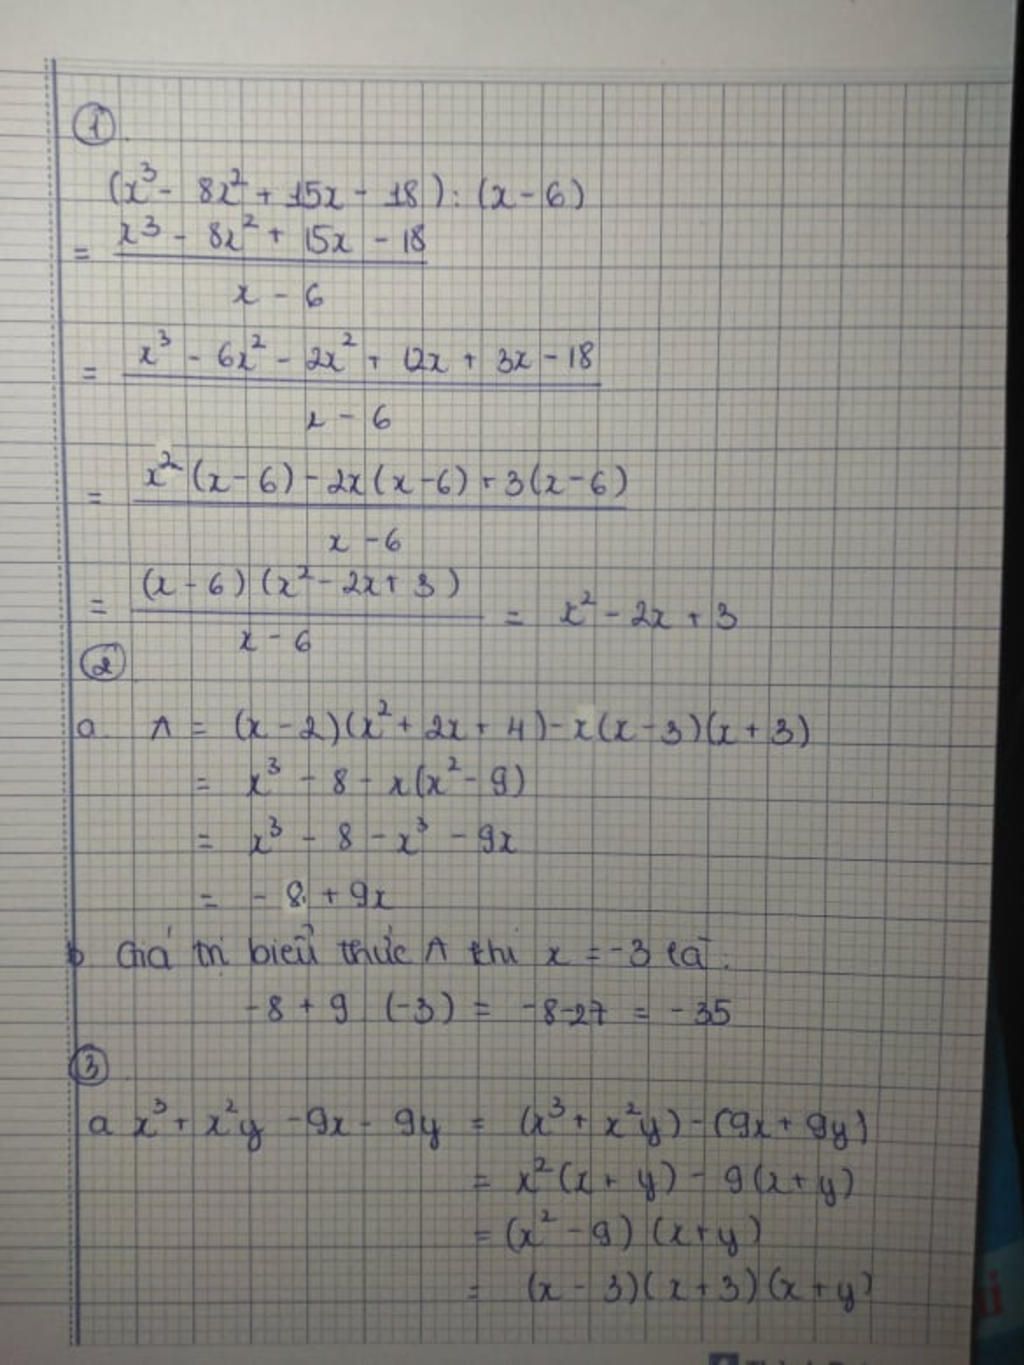 1
(x³ - 8x² + 15x - 18) : (x - 6)
= x³ - 8x² + 15x - 18
x - 6
= x³ - 6x² - 2x² + 12x + 3x - 18
x - 6
= x² (x - 6) - 2x (x - 6) + 3(x - 6)
x - 6
= (x - 6) (x² - 2x + 3) = x² - 2x + 3
x - 6
2
a. A = (x - 2)(x² + 2x + 4) - x(x - 3)(x + 3)
= x³ - 8 - x(x² - 9)
= x³ - 8 - x³ - 9x
= - 8 + 9x
b Giá trị biểu thức A khi x = -3 là:
-8 + 9 (-3) = -8-27 = -35
3
a x³ + x²y - 9x - 9y = (x³ + x²y) - (9x + 9y)
= x² (x + y) - 9 (x + y)
= (x² - 9) (x + y)
= (x - 3)(x + 3)(x + y)